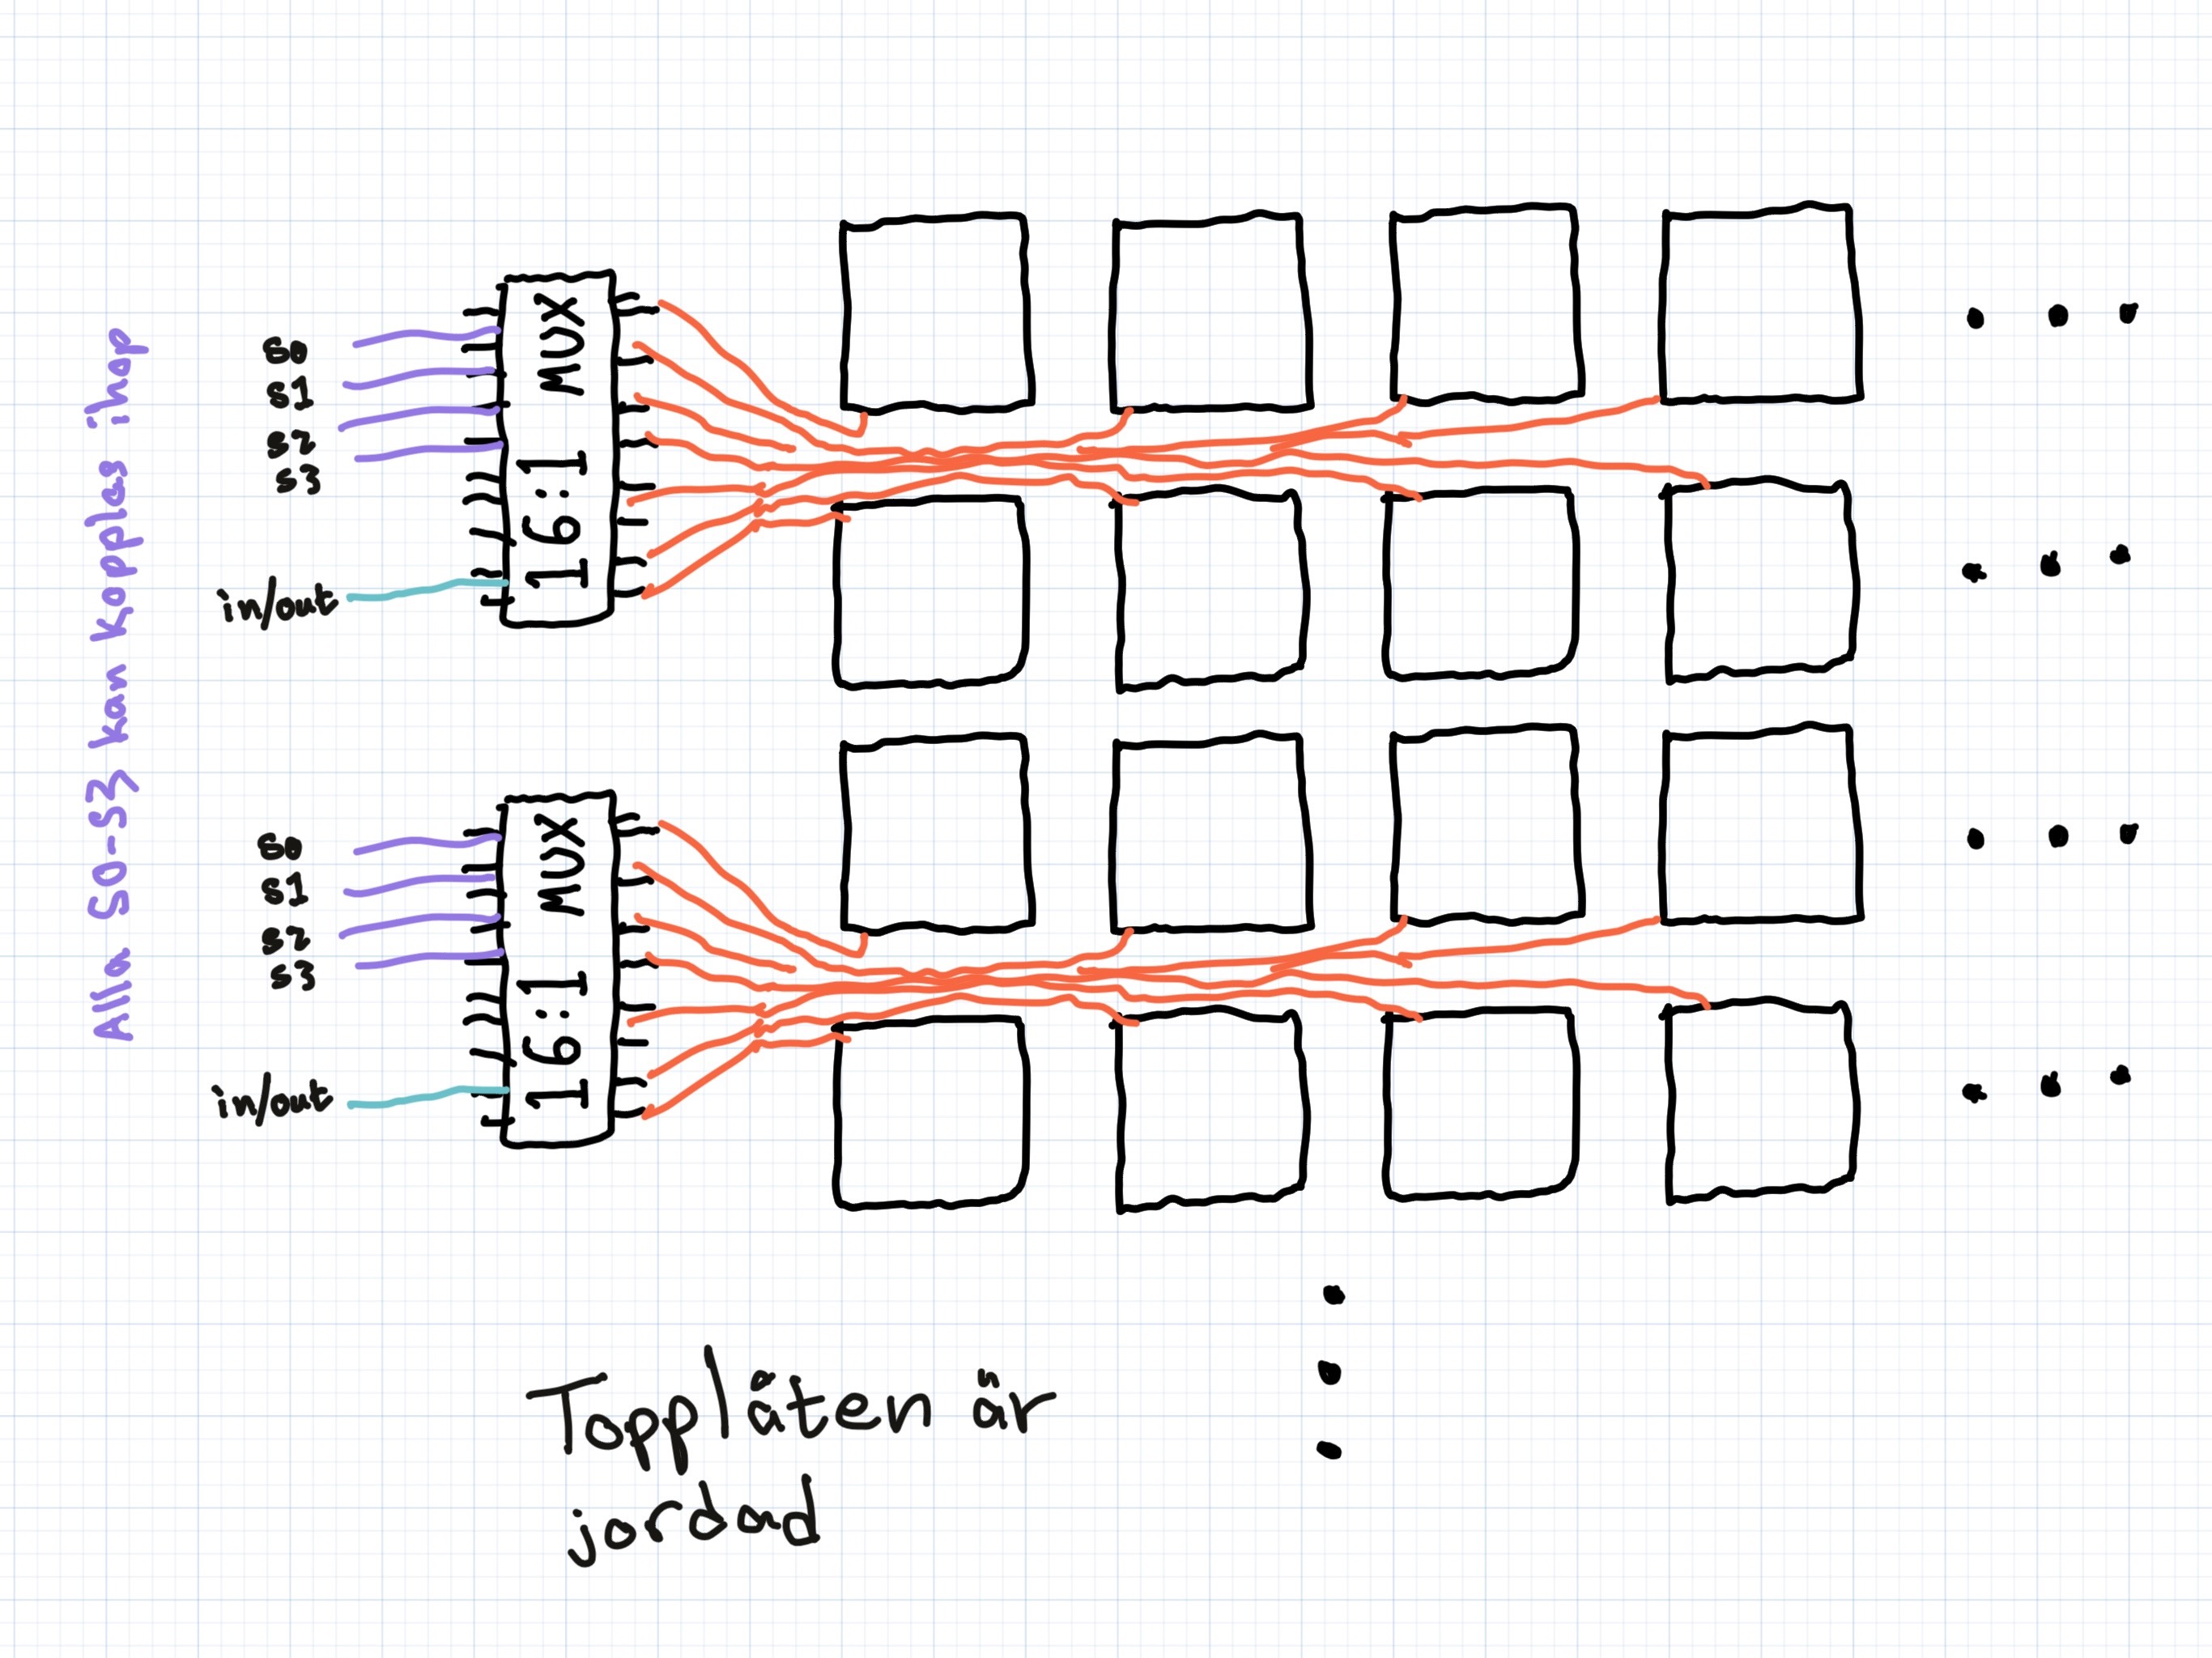 Alla S0-S3 kan kopplas ihop
S0
S1
S2
S3
in/out
MUX
16:1
S0
S1
S2
S3
in/out
MUX
16:1
Topplåten är
jordad